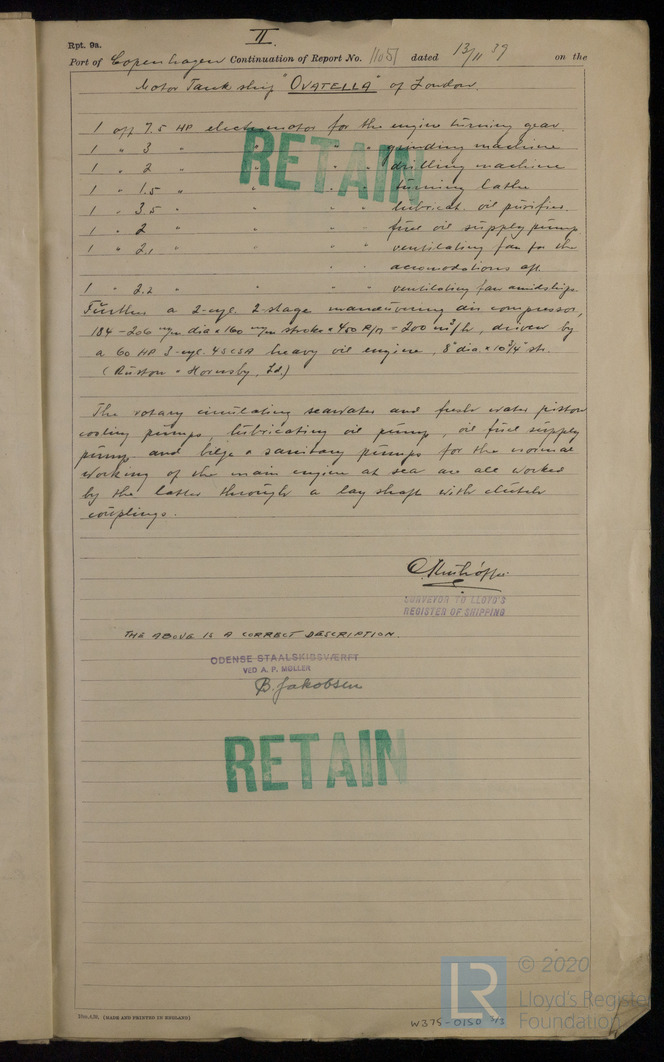 II.
Rpt. 9a.
Port of Copenhagen Continuation of Report No. 11051 dated 13/11 39 on the
Motor Tank ship "OVATELLA" of London.
1 off 7.5 HP electromotor for the engine turning gear.
1 " 3 " " " " grinding machine
1 " 2 " " " " drilling machine
1 " 1.5 " " " " turning lathe
1 " 3.5 " " " " lubricat. oil purifier.
1 " 2 " " " " fuel oil supply pump
1 " 2.1 " " " " ventilating fan for the
" " accomodations aft.
1 " 2.2 " " " " ventilating fan amidships.
Further a 2-cyl. 2-stage manœuvering air compressor,
184 - 206 m/m dia × 160 m/m stroke × 450 R/M = 200 m³/h, driven by
a 60 HP 3-cyl. 4SCSA heavy oil engine, 8" dia. × 10¾" str.
(Ruston & Hornsby, Ld.)
The rotary circulating seawater and fresh water piston
cooling pumps, lubricating oil pump, oil fuel supply
pump and bilge & sanitary pumps for the normal
working of the main engine at sea are all worked
by the latter through a lay shaft with clutch
couplings.
SURVEYOR TO LLOYD'S
REGISTER OF SHIPPING
THE ABOVE IS A CORRECT DESCRIPTION.
ODENSE STAALSKIBSVÆRFT
VED A. P. MØLLER
B. Jakobsen
RETAIN
RETAIN
(MADE AND PRINTED IN ENGLAND)
W375-0150 2/3
LR
© 2020
Lloyd's Register
Foundation